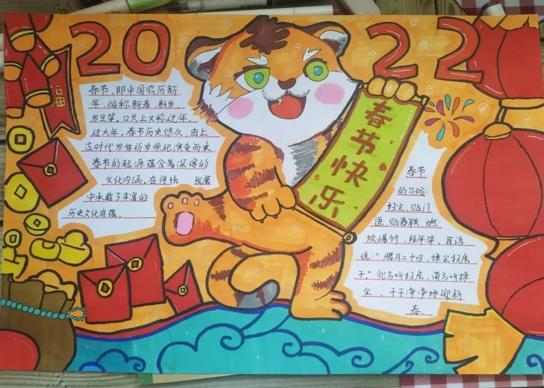 2022
春节快乐
春节,即中国农历新
年,俗称新春、新岁、
岁旦等,口头上又称过年、
过大年。春节历史悠久,由上
古时代岁首祈岁祭祀演变而来
春节的起源蕴含着深邃的
文化内涵,在传承 发展
中承载了丰富的
历史文化底蕴。
春节
的习俗:
扫尘,贴门
画,贴春联,燃
放爆竹,拜年等,民谚
说:“腊月二十四,掸尘扫房
子”北方叫扫房,南方叫掸
尘,干干净净地迎新
春。